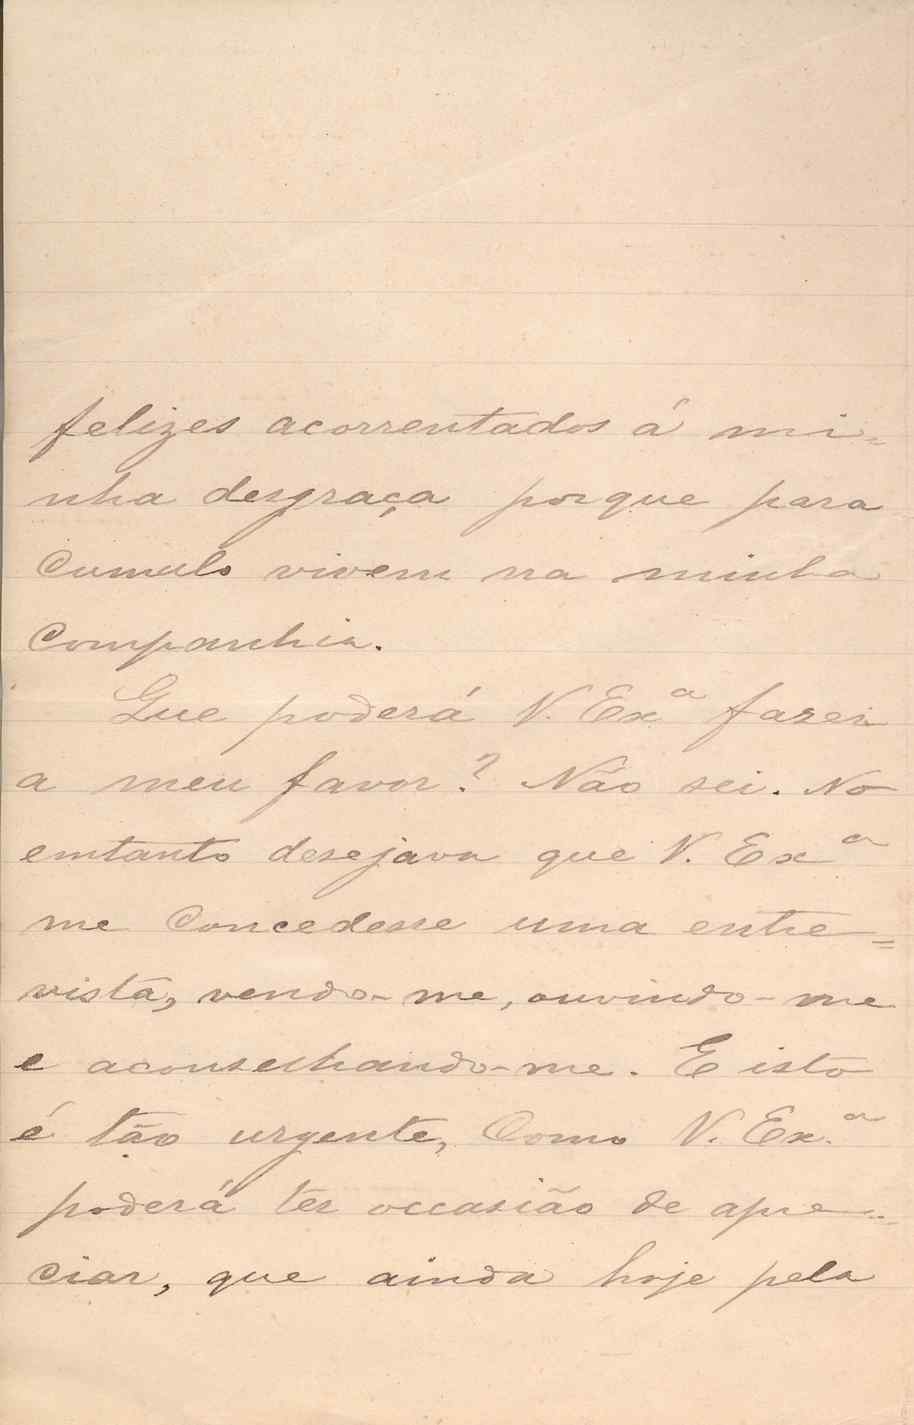 felizes acorrentados á mi=
nha desgraça porque para
cumulo vivem na minha
companhia.
Que poderá V. Exª fazer
a meu favor? Não sei. No
emtanto desejava que V. Exª
me concedesse uma entre=
vista, vendo-me, ouvindo-me
e aconselhando-me. E isto
é tão urgente, como V. Ex.ª
poderá ter occasião de apre=
ciar, que ainda hoje pela